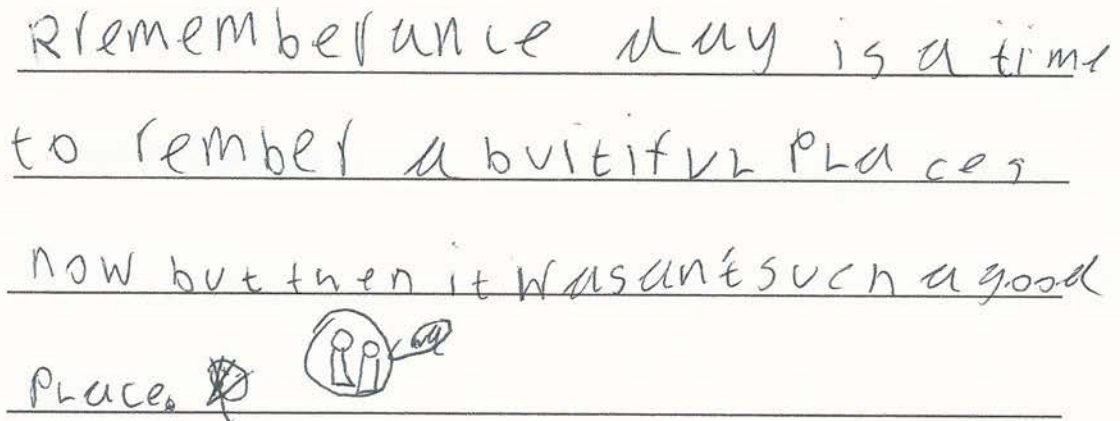 Rrememberance day is a time
to rember a buitiful Places
now but then it wasan't such a good
Place.